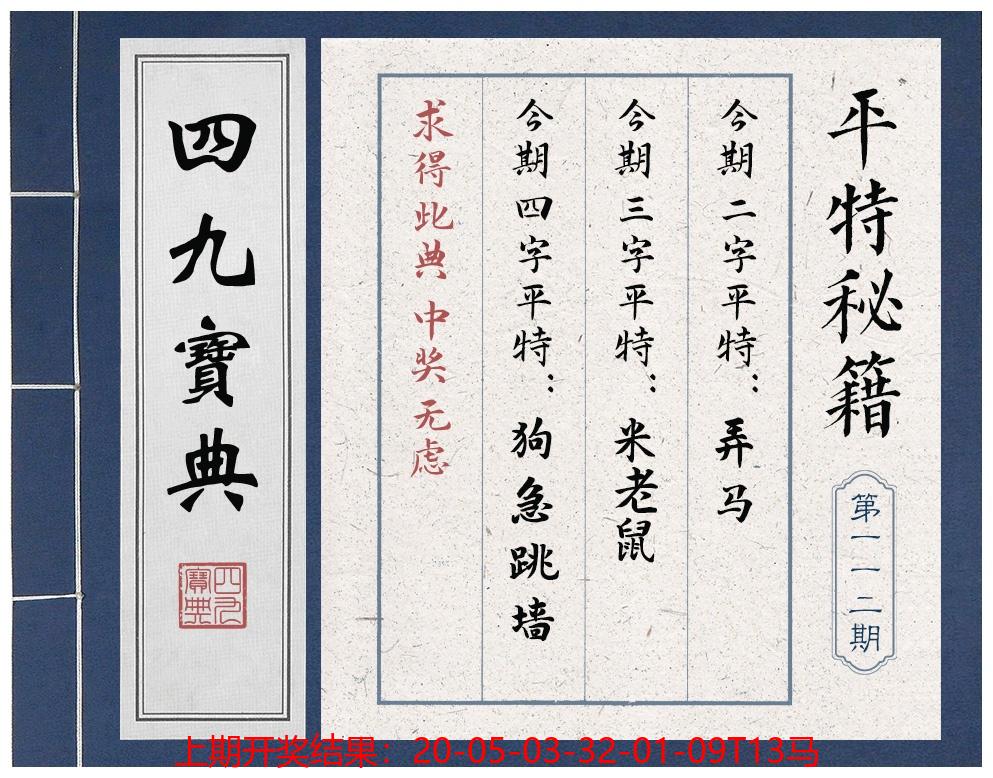 平特秘籍
第一一二期
今期二字平特：弄马
今期三字平特：米老鼠
今期四字平特：狗急跳墙
求得此典 中奖无虑
四九寶典
四九寶典
上期开奖结果：20-05-03-32-01-09T13马